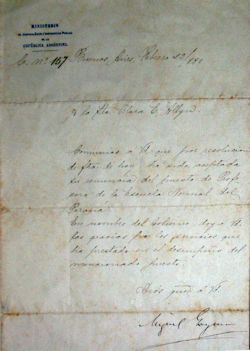 MINISTERIO
DE JUSTICIA, CULTO E INSTRUCCION PUBLICA
DE LA
REPÚBLICA ARGENTINA
C. Nº 157 Buenos Aires, Febrero
A la Sta. Clara
Comunico á V. que por resolucion
de fha. de hoy ha sido aceptada
su renuncia del puesto de Profe
sora de la Escuela Normal del
Paraná.
En nombre del Gobierno doy á V.
las gracias por los servicios que
ha prestado en el desempeño del
mencionado puesto.
Dios gue á V.